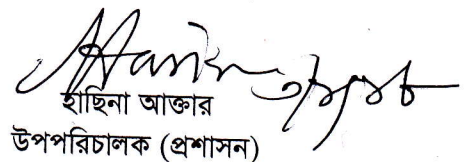 হাছিনা আক্তার
উপপরিচালক (প্রশাসন)